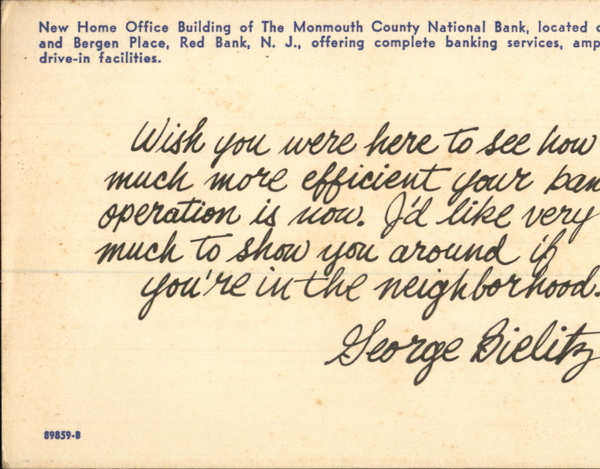 New Home Office Building of The Monmouth County National Bank, located
and Bergen Place, Red Bank, N. J., offering complete banking services,
drive-in facilities.
Wish you were here to see how
much more efficient your
operation is now. I'd like very
much to show you around if
you're in the neighborhood.
George Bielitz
89859-B